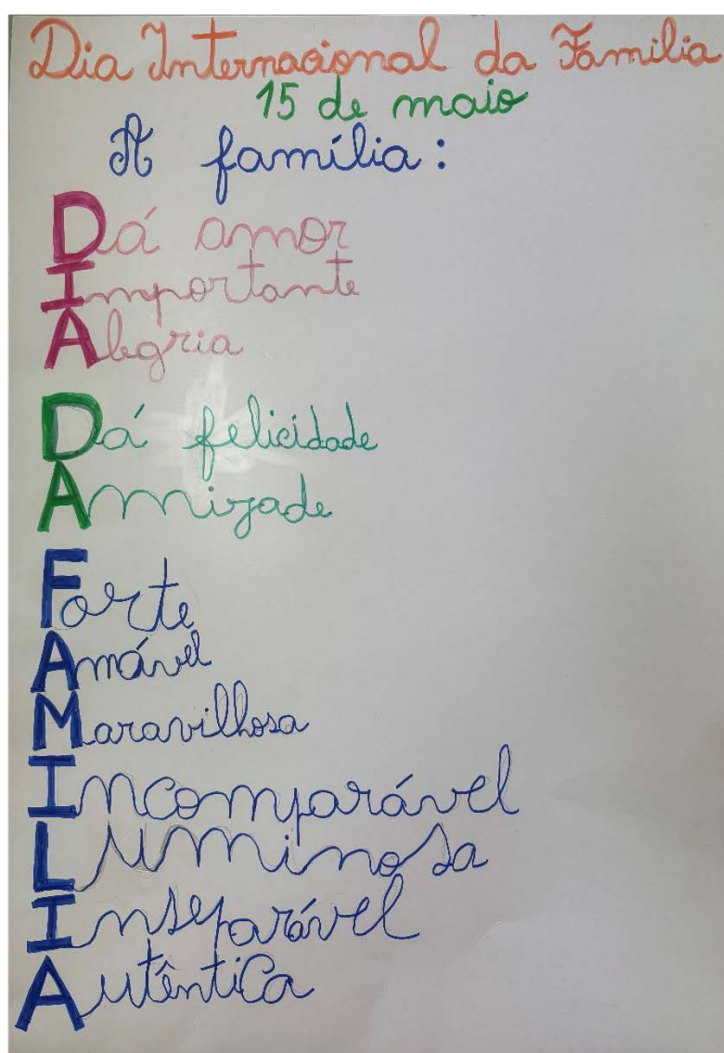 Dia Internacional da Família
15 de maio
A família:
Dá amor
Importante
Alegria
Dá felicidade
Amizade
Forte
Amável
Maravilhosa
Incomparável
Luminosa
Inseparável
Autêntica